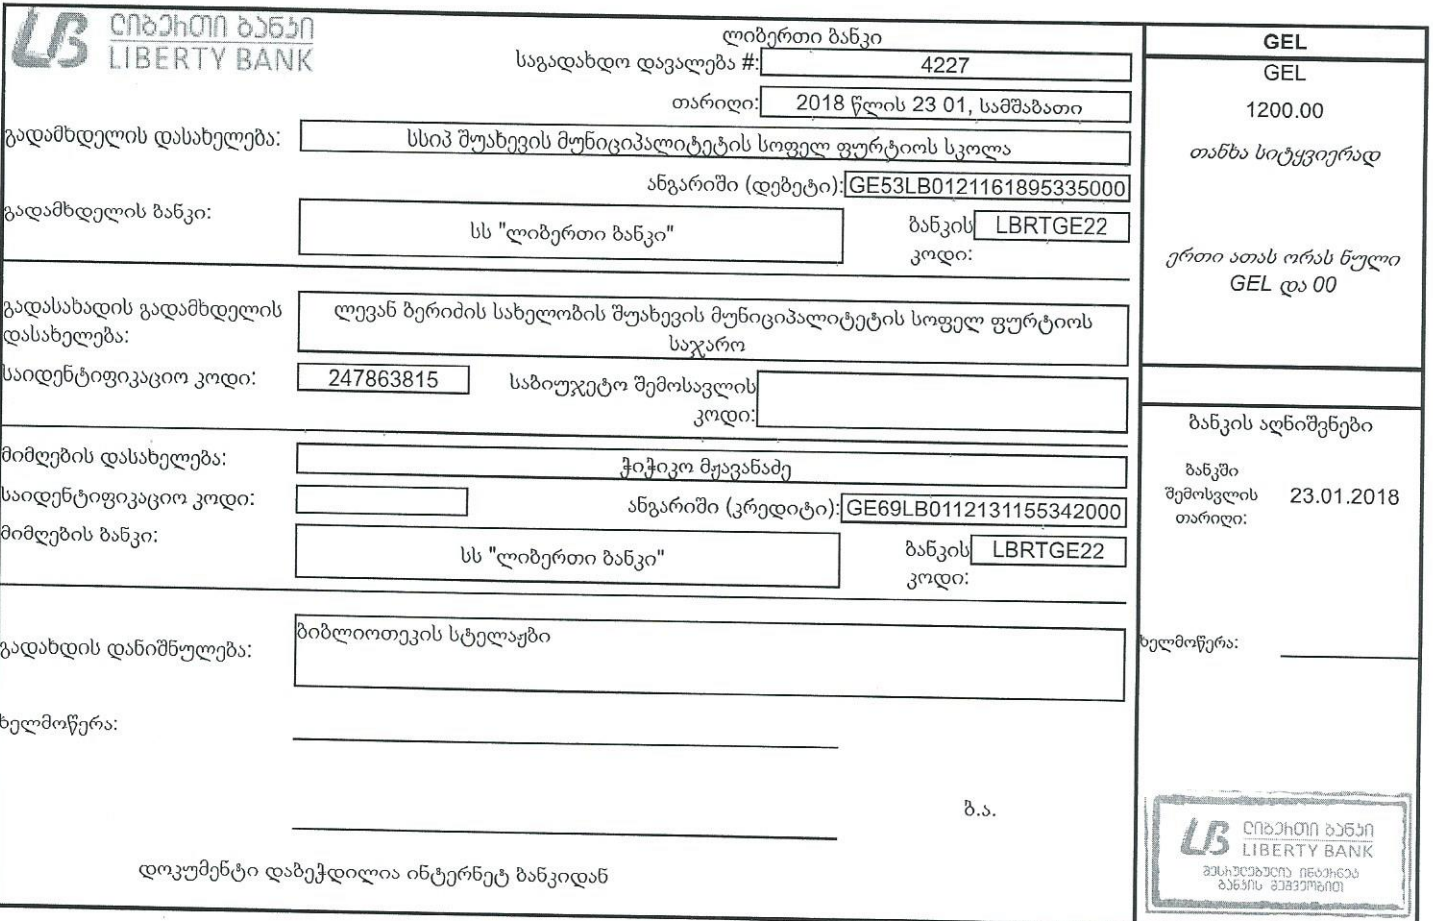 ლიბერთი ბანკი
LIBERTY BANK
ლიბერთი ბანკი
საგადახდო დავალება #: 4227
თარიღი: 2018 წლის 23 01, სამშაბათი
გადამხდელის დასახელება: სსიპ შუახევის მუნიციპალიტეტის სოფელ ფურტიოს სკოლა
ანგარიში (დებეტი): GE53LB0121161895335000
გადამხდელის ბანკი: სს "ლიბერთი ბანკი" ბანკის კოდი: LBRTGE22
გადასახადის გადამხდელის დასახელება: ლევან ბერიძის სახელობის შუახევის მუნიციპალიტეტის სოფელ ფურტიოს
საჯარო
საიდენტიფიკაციო კოდი: 247863815 საბიუჯეტო შემოსავლის კოდი:
მიმღების დასახელება: ჭიჭიკო მჟავანაძე
საიდენტიფიკაციო კოდი: ანგარიში (კრედიტი): GE69LB0112131155342000
მიმღების ბანკი: სს "ლიბერთი ბანკი" ბანკის კოდი: LBRTGE22
გადახდის დანიშნულება: ბიბლიოთეკის სტელაჟბი
ხელმოწერა:
ბ.ა.
დოკუმენტი დაბეჭდილია ინტერნეტ ბანკიდან
GEL
GEL
1200.00
თანხა სიტყვიერად
ერთი ათას ორას ნული
GEL და 00
ბანკის აღნიშვნები
ბანკში
შემოსვლის 23.01.2018
თარიღი:
ხელმოწერა:
ლიბერთი ბანკი
LIBERTY BANK
შესრულებულია ინტერნეტ
ბანკის მეშვეობით